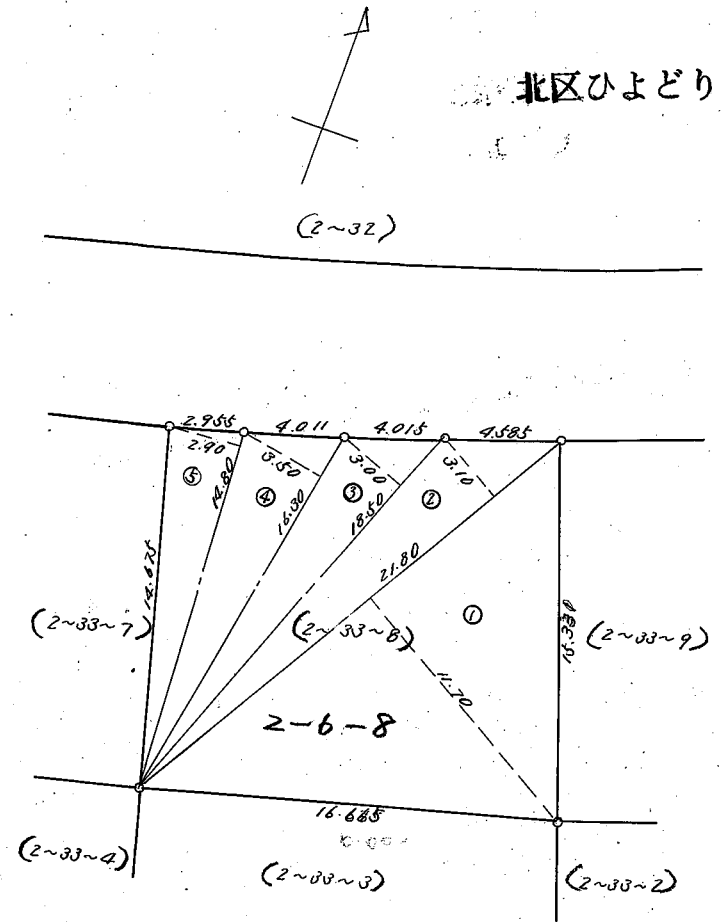 北区ひよどり
(2~32)
2.955
4.011
4.015
4.585
2.90
3.50
3.00
3.10
⑤
④
③
②
14.80
16.30
18.50
21.80
14.675
①
(2~33~7)
(2~33~8)
(2~33~9)
11.70
2-6-8
(2~33~4)
(2~33~3)
(2~33~2)